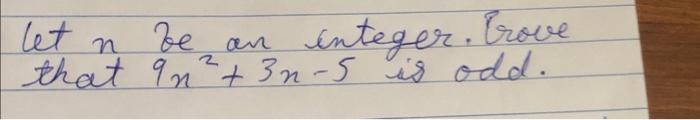 let n be an integer. Prove
that 9n² + 3n - 5 is odd.